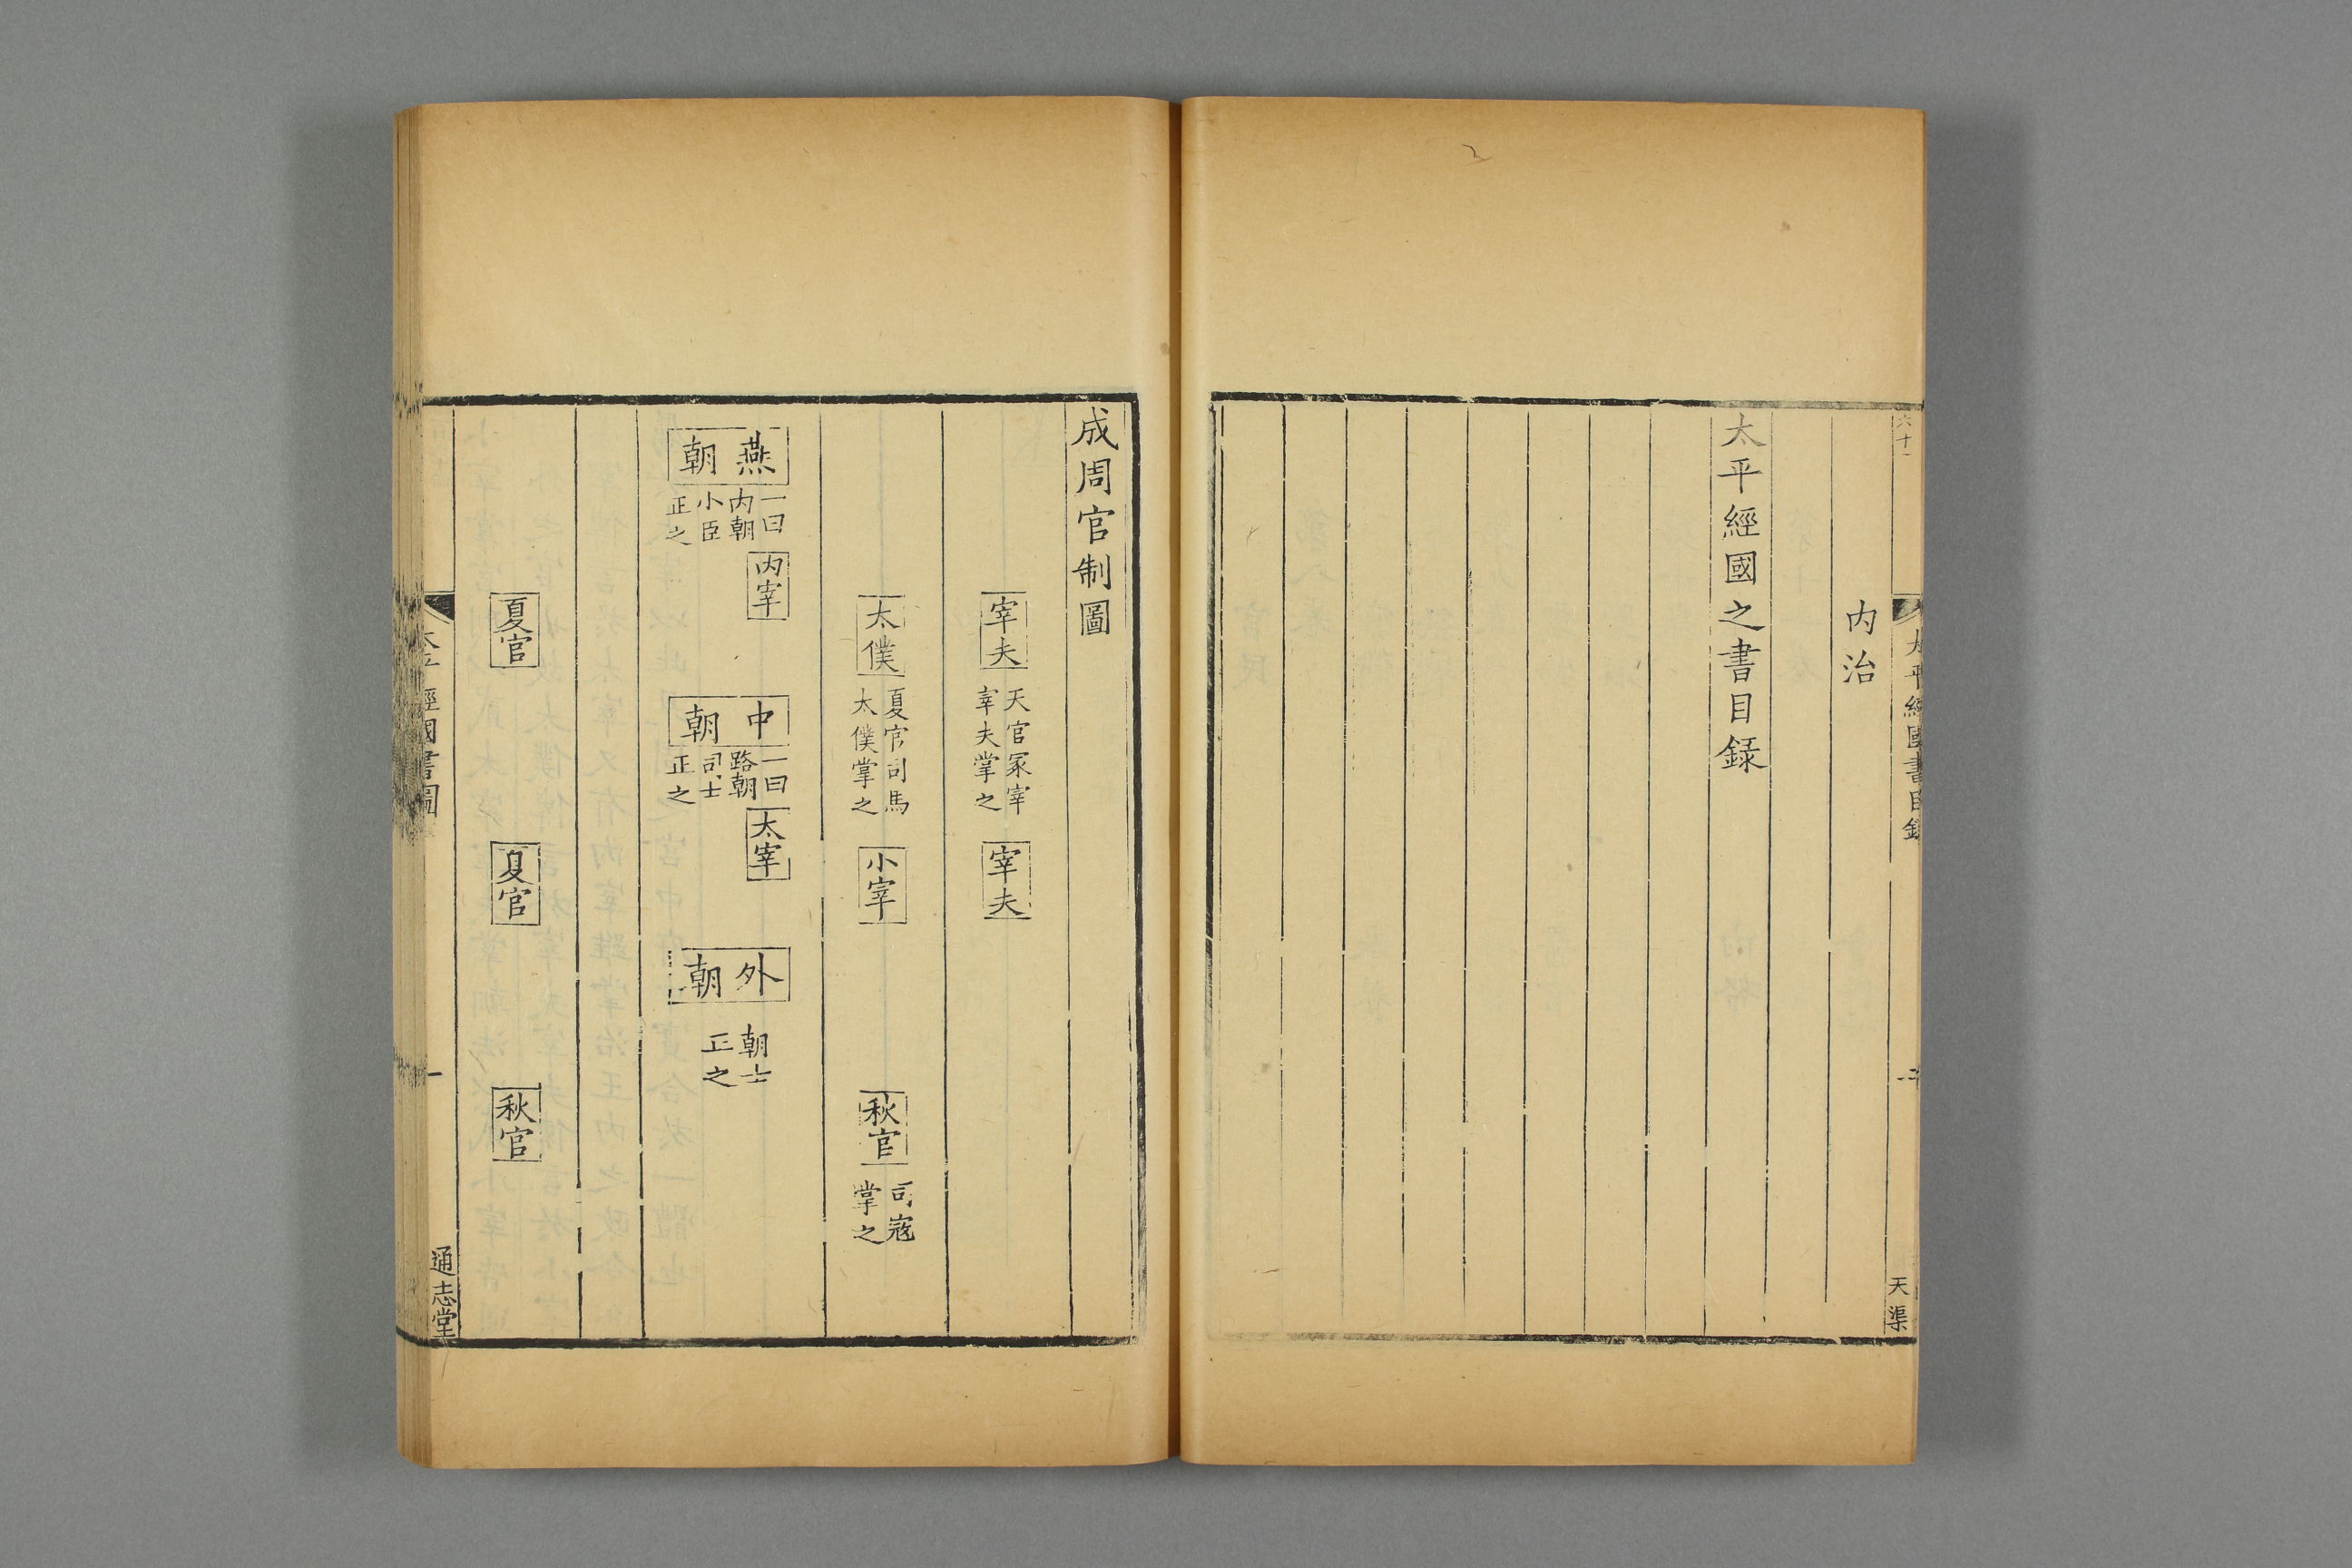 内治
太平經國之書目録
天渠
成周官制圖
宰夫
天官冢宰
宰夫掌之
宰夫
太僕
夏官司馬
太僕掌之
小宰
秋官
司寇
掌之
燕朝
一曰
内朝
小臣
正之
内宰
中朝
一曰
路朝
司士
正之
太宰
外朝
朝士
正之
夏官
夏官
秋官
經國書圖
一
通志堂